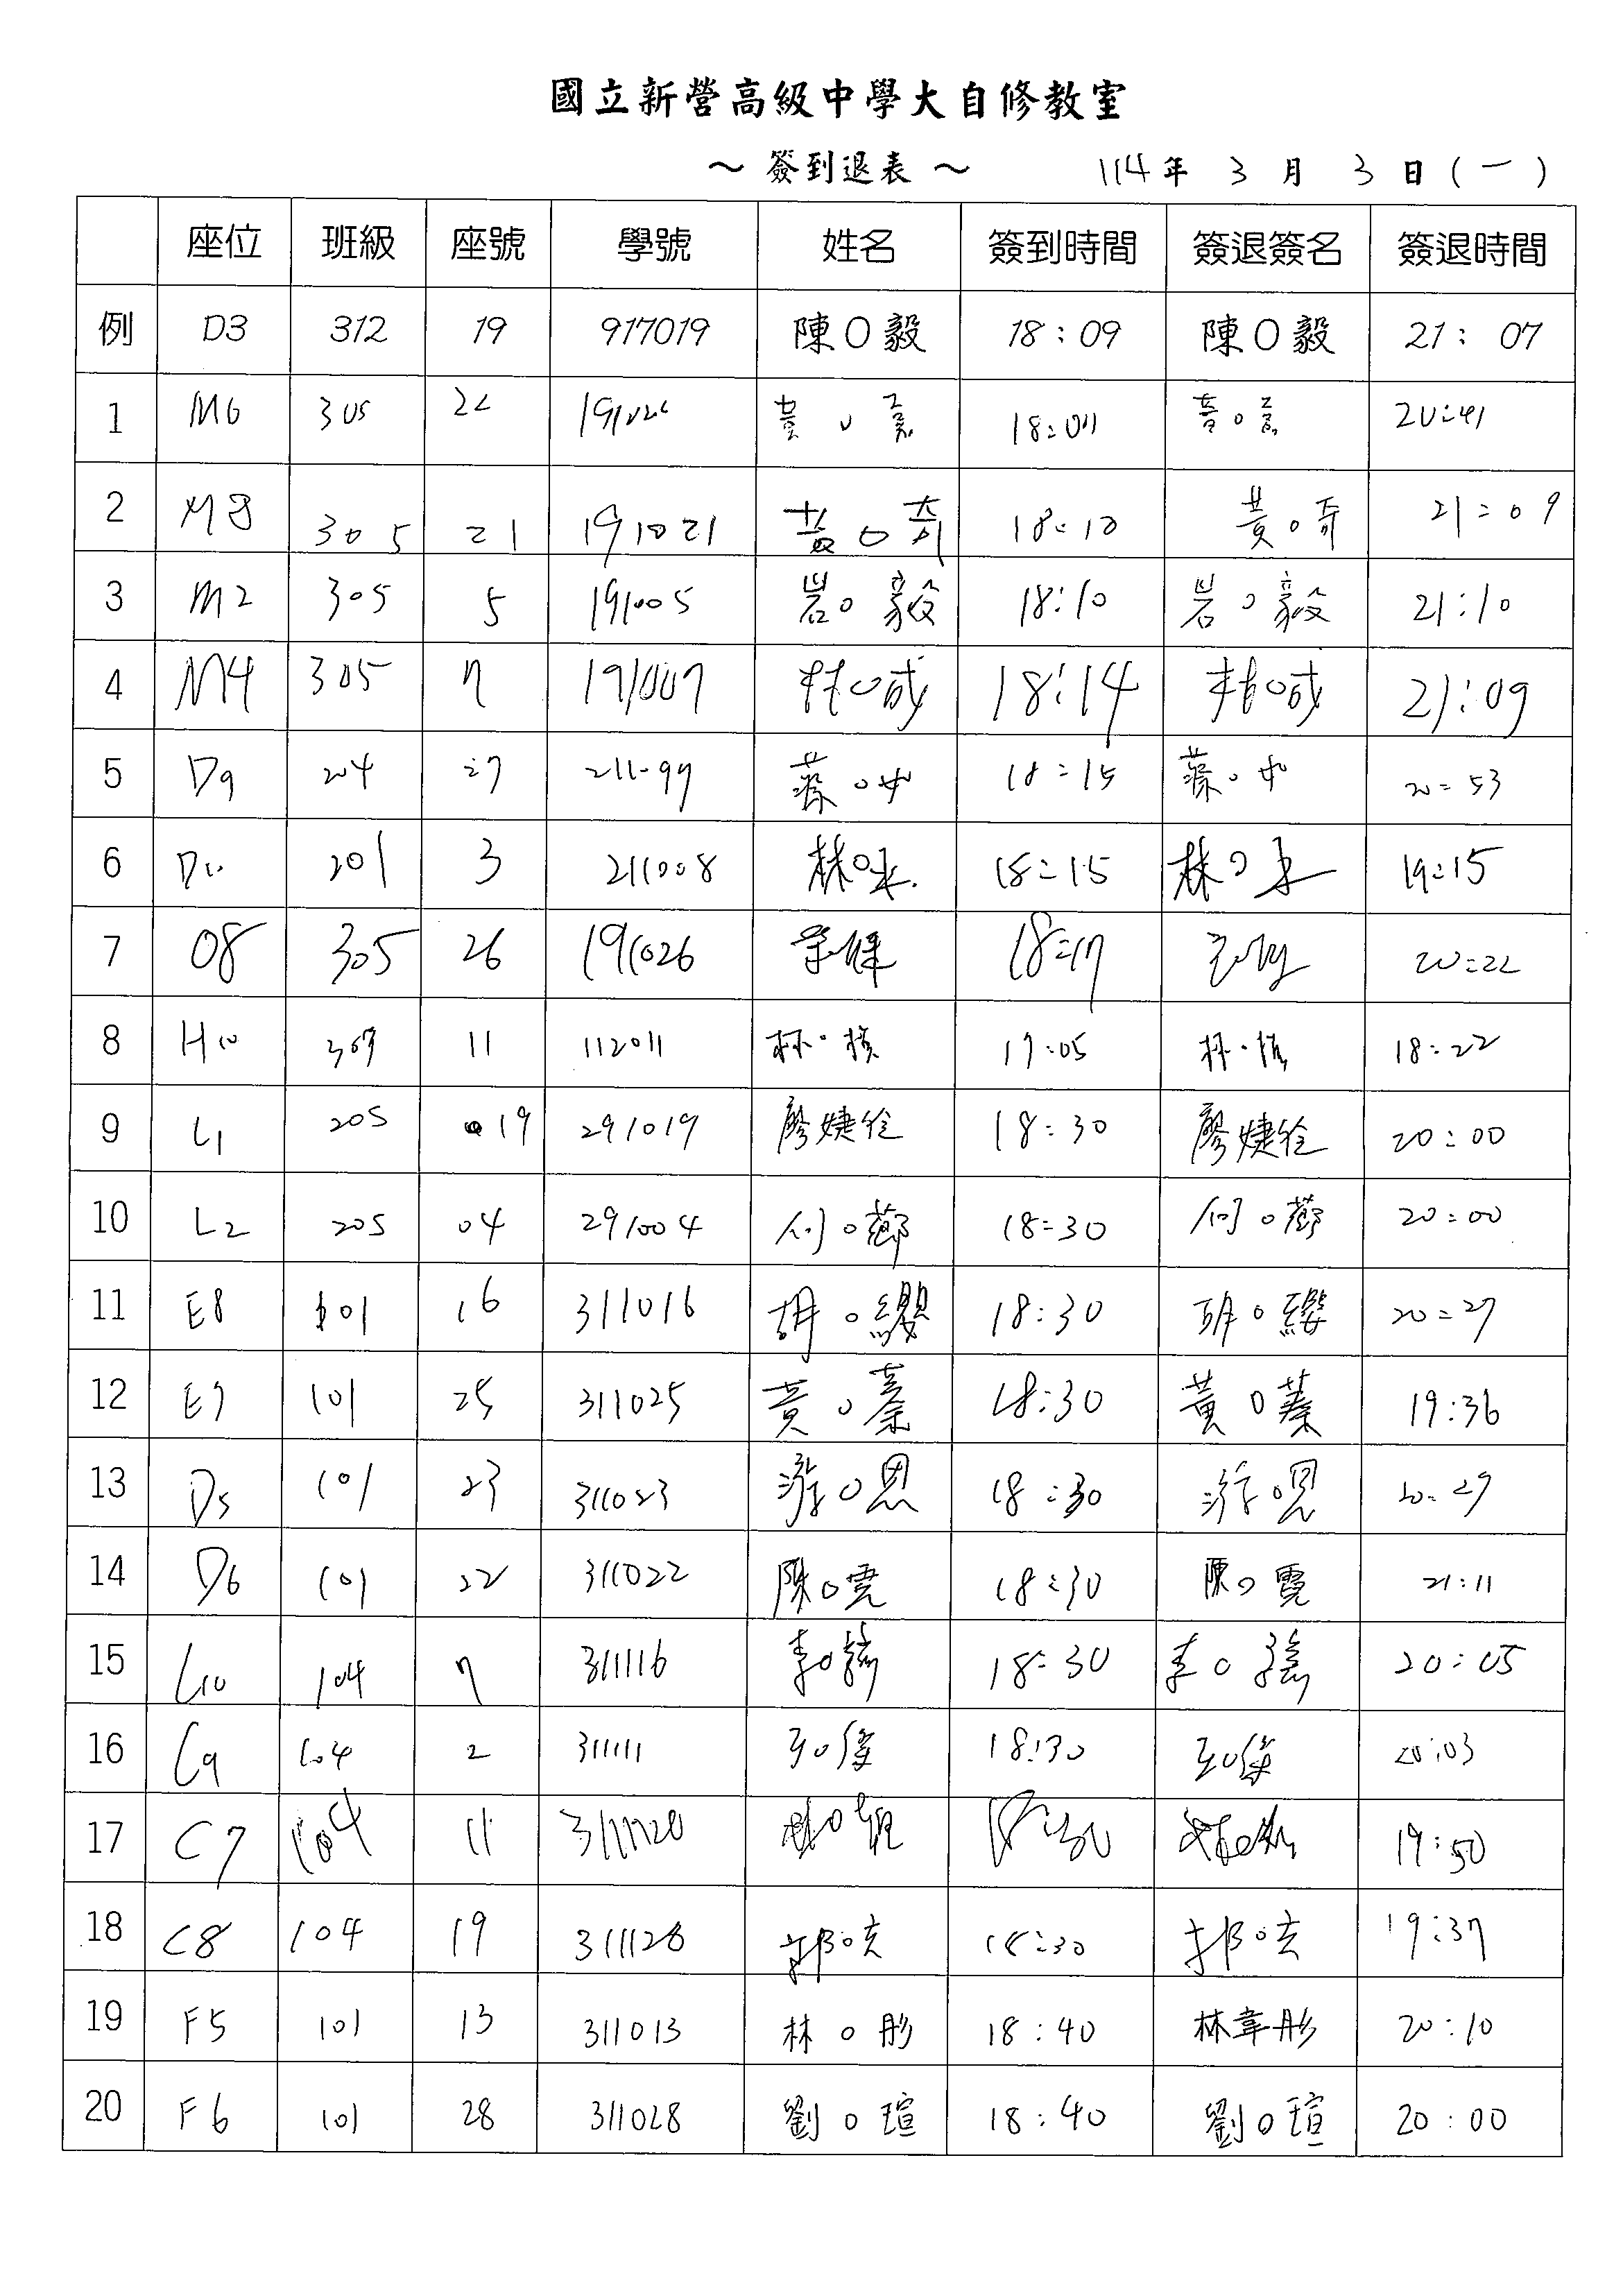 國立新營高級中學大自修教室
～ 簽到退表 ～ 114 年 3 月 3 日 ( 一 )
座位 班級 座號 學號 姓名 簽到時間 簽退簽名 簽退時間
例 D3 312 19 917019 陳O毅 18:09 陳O毅 21:07
1 M6 305 22 黃O 20:41
2 M8 305 21 191021 黃O奇 18:10 黃O奇 21:09
3 M2 305 5 191005 岩O毅 18:10 岩O毅 21:10
4 M4 305 7 191007 林O成 18:14 林O成 21:09
5 D9 204 27 211099 18:15 20:53
6 D10 201 3 211008 林O 18:15 林O 19:15
7 O8 305 26 191026 18:17 20:22
8 H10 307 11 112011 林O 17:05 林O 18:22
9 L1 205 19 291019 廖婕伶 18:30 廖婕伶 20:00
10 L2 205 04 291004 何O 18:30 何O 20:00
11 E8 101 16 311016 胡O纓 18:30 胡O纓 20:27
12 E7 101 25 311025 黃O蓁 18:30 黃O蓁 19:36
13 D5 101 23 311023 游O恩 18:30 游O恩 20:29
14 D6 101 22 311022 陳O霓 18:30 陳O霓 21:11
15 C10 104 7 311116 李O 18:30 李O 20:05
16 C9 104 2 311111 王O 18:30 王O 20:03
17 C7 104 11 311120 林O 18:30 林O 19:50
18 C8 104 19 311128 郭O 18:30 郭O 19:37
19 F5 101 13 311013 林O彤 18:40 林韋彤 20:10
20 F6 101 28 311028 劉O瑄 18:40 劉O瑄 20:00